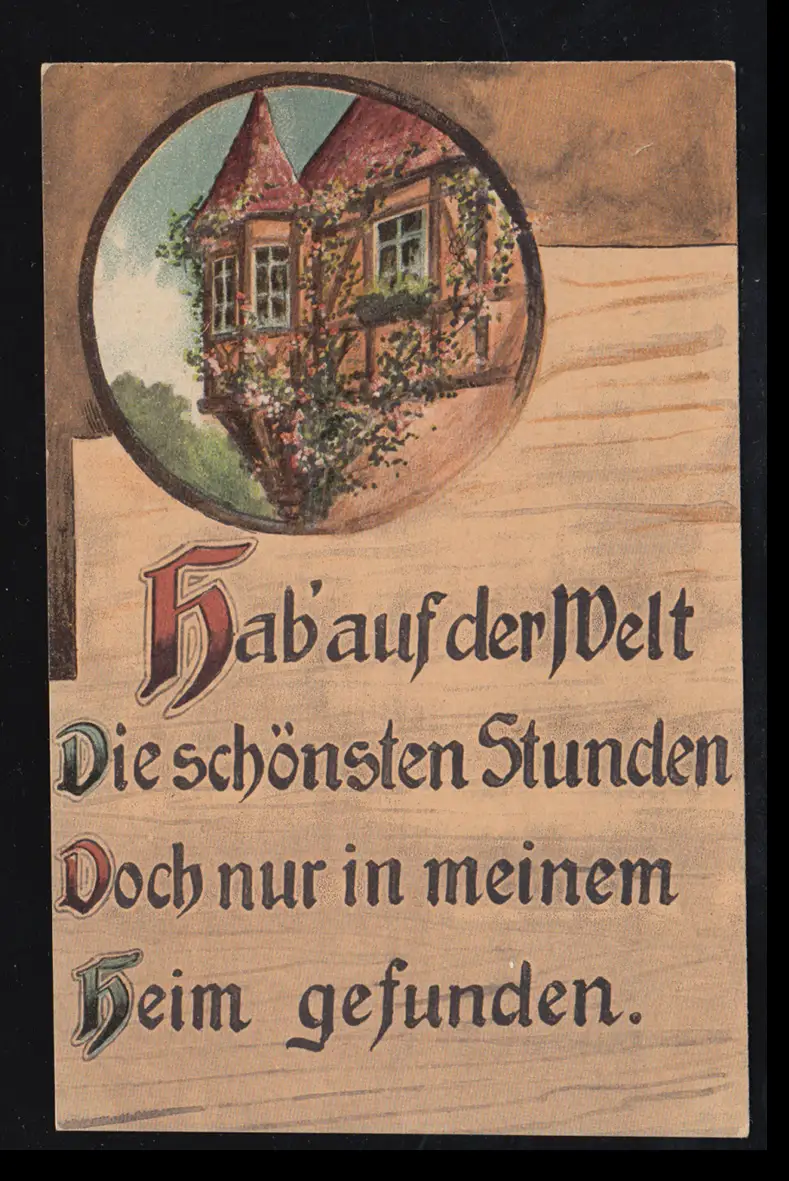 Hab' auf der Welt
Die schönsten Stunden
Doch nur in meinem
Heim gefunden.